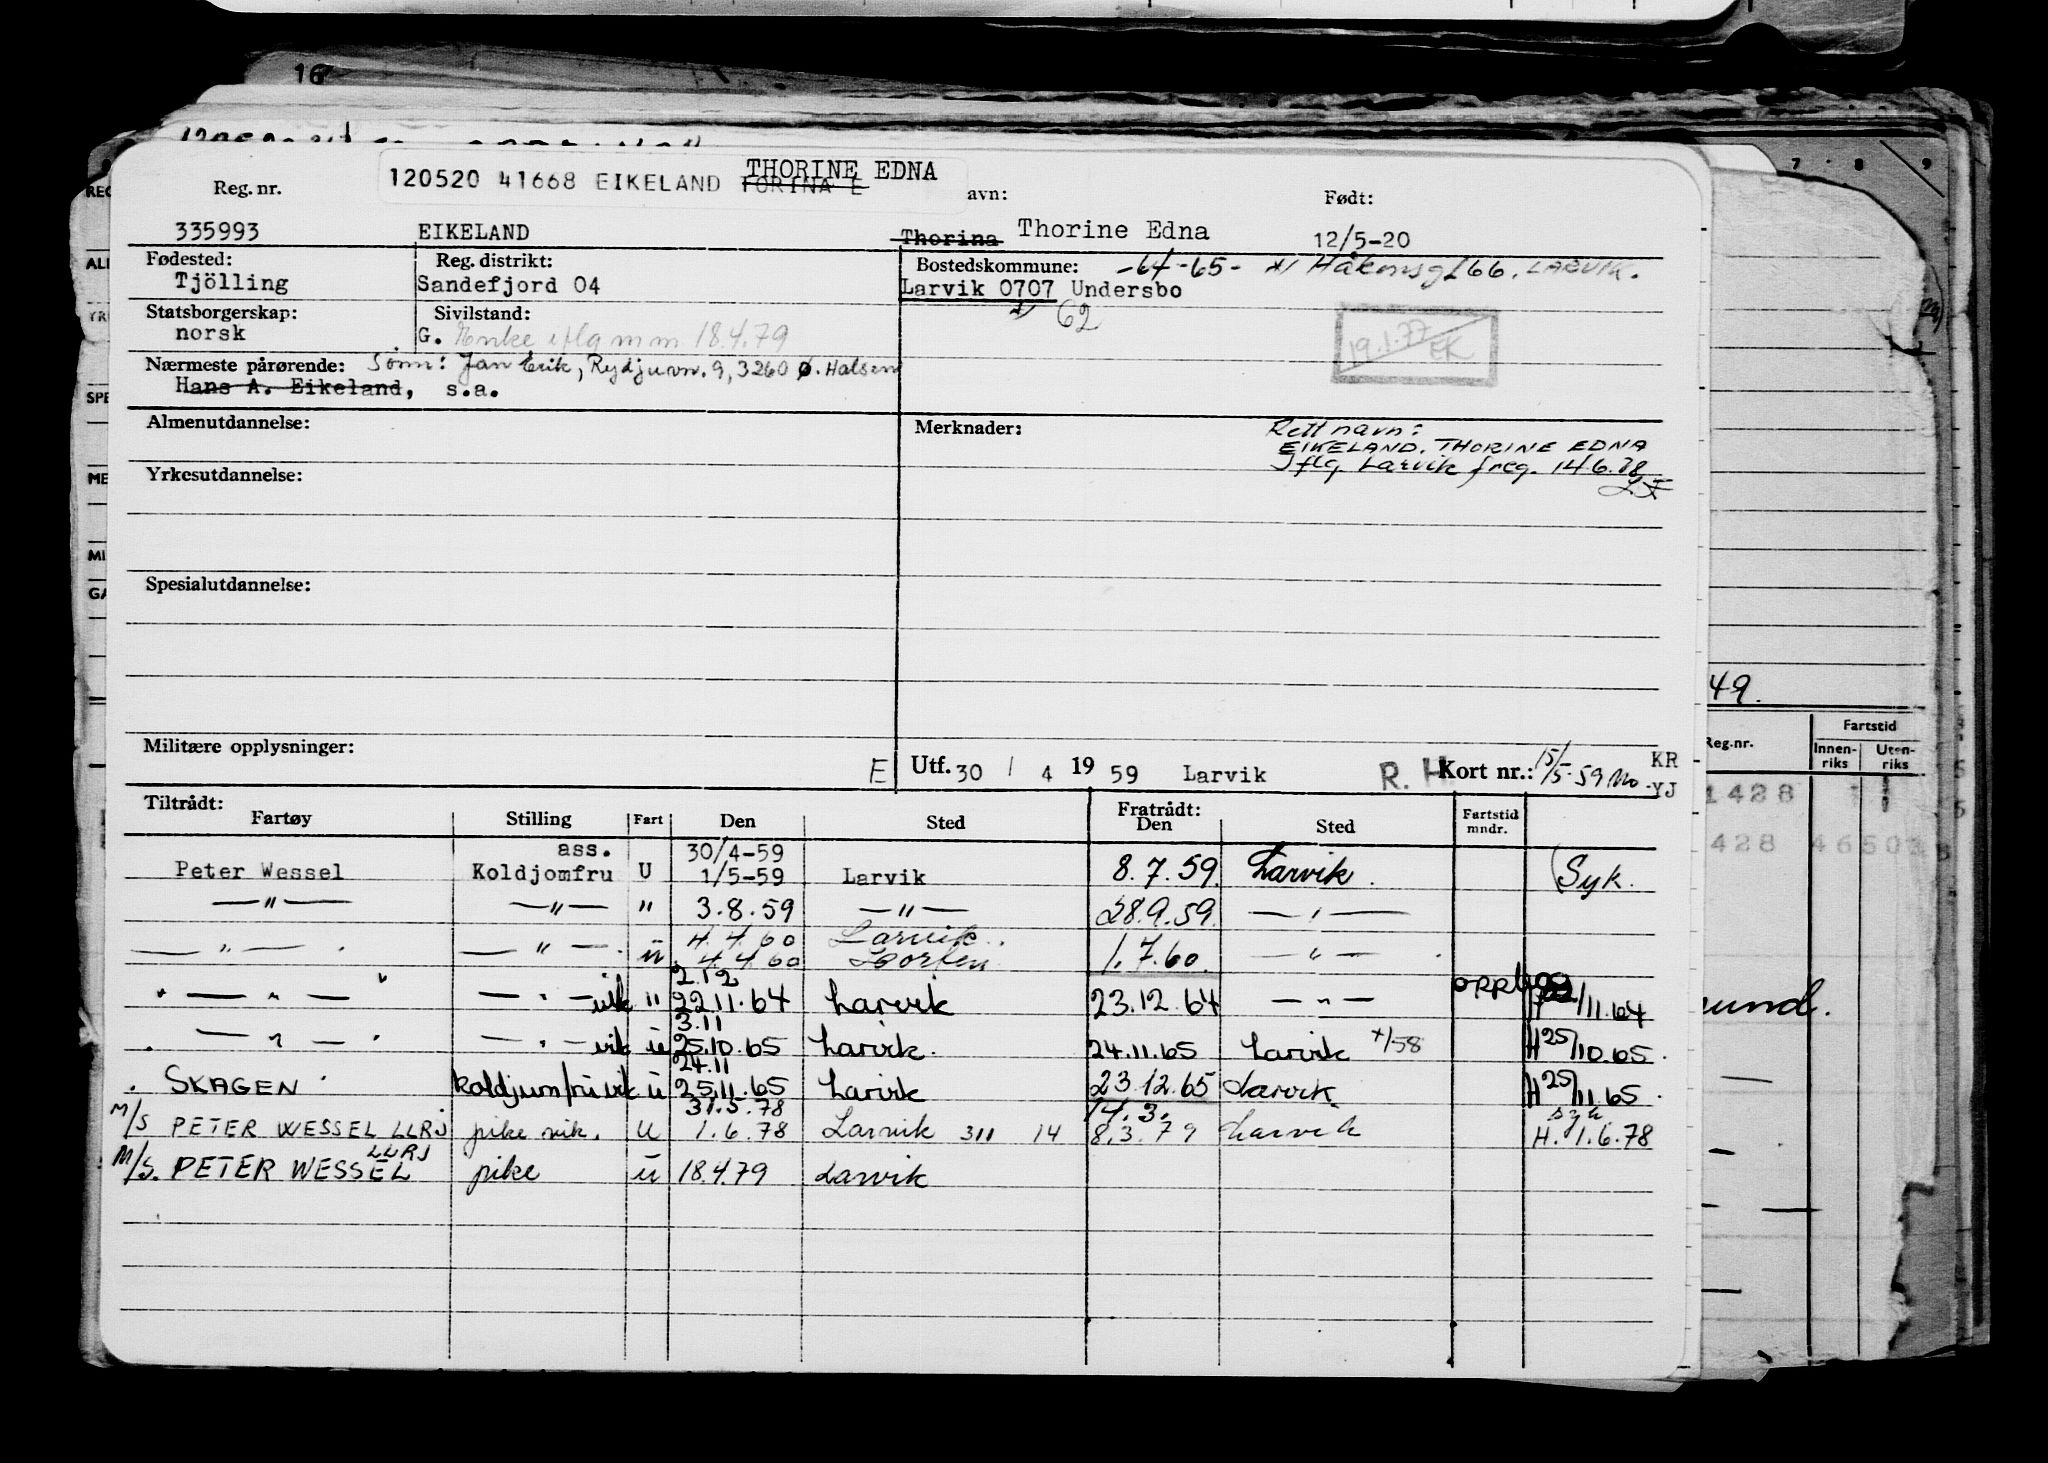 16
THORINE EDNA
Reg. nr. 120520 41668 EIKELAND TORINA E avn: Født:
335993 EIKELAND Thorina Thorine Edna 12/5-20
Fødested: Reg. distrikt: Bostedskommune: -64-65- Håkonsgt 66, LARVIK.
Tjölling Sandefjord 04 Larvik 0707 Undersbo
Statsborgerskap: Sivilstand: 62
norsk G. Enke iflg mm 18.4.79
19.1.77 EK
Nærmeste pårørende: Sønn: Jan Erik, Rydjuvn. 9, 3260 Ø. Halsen
Hans A. Eikeland, s.a.
Almenutdannelse: Merknader: Rett navn:
EIKELAND. THORINE EDNA
Iflg Larvik freg. 14.6.78
Yrkesutdannelse:
Spesialutdannelse:
Militære opplysninger:
E Utf. 30 / 4 19 59 Larvik R. H Kort nr.: 15/5-59 Mo KR
YJ
Tiltrådt: Fratrådt:
Fartøy Stilling Fart Den Sted Den Sted Fartstid mndr.
ass. 30/4-59
Peter Wessel Koldjomfru U 1/5-59 Larvik 8.7.59. Larvik. Syk.
—"— —"— " 3.8.59 —"— 28.9.59. —"—
4.4.60 Larvik.
—"— —"— u 4.4.60 Horten 1.7.60. —"—
2.12
—"— —"— vik " 22.11.64 Larvik 23.12.64 —"— /11.64
3.11
—"— —"— vik u 25.10.65 Larvik. 24.11.65 Larvik +/58 H 25/10.65.
24.11
SKAGEN koldjumfru vik u 25.11.65 Larvik 23.12.65 Larvik. H 25/11.65.
31.5.78 14.3. syk
M/S PETER WESSEL LLRJ pike vik. U 1.6.78 Larvik 311 14 8.3.79 Larvik H. 1.6.78
LLRJ
M/S. PETER WESSEL pike u 18.4.79 Larvik
7 8 9
REG
ALI
YRI
SPE
ME
MI
GA
49.
Reg.nr. Fartstid
Innen-riks Uten-riks
1428
428 46503